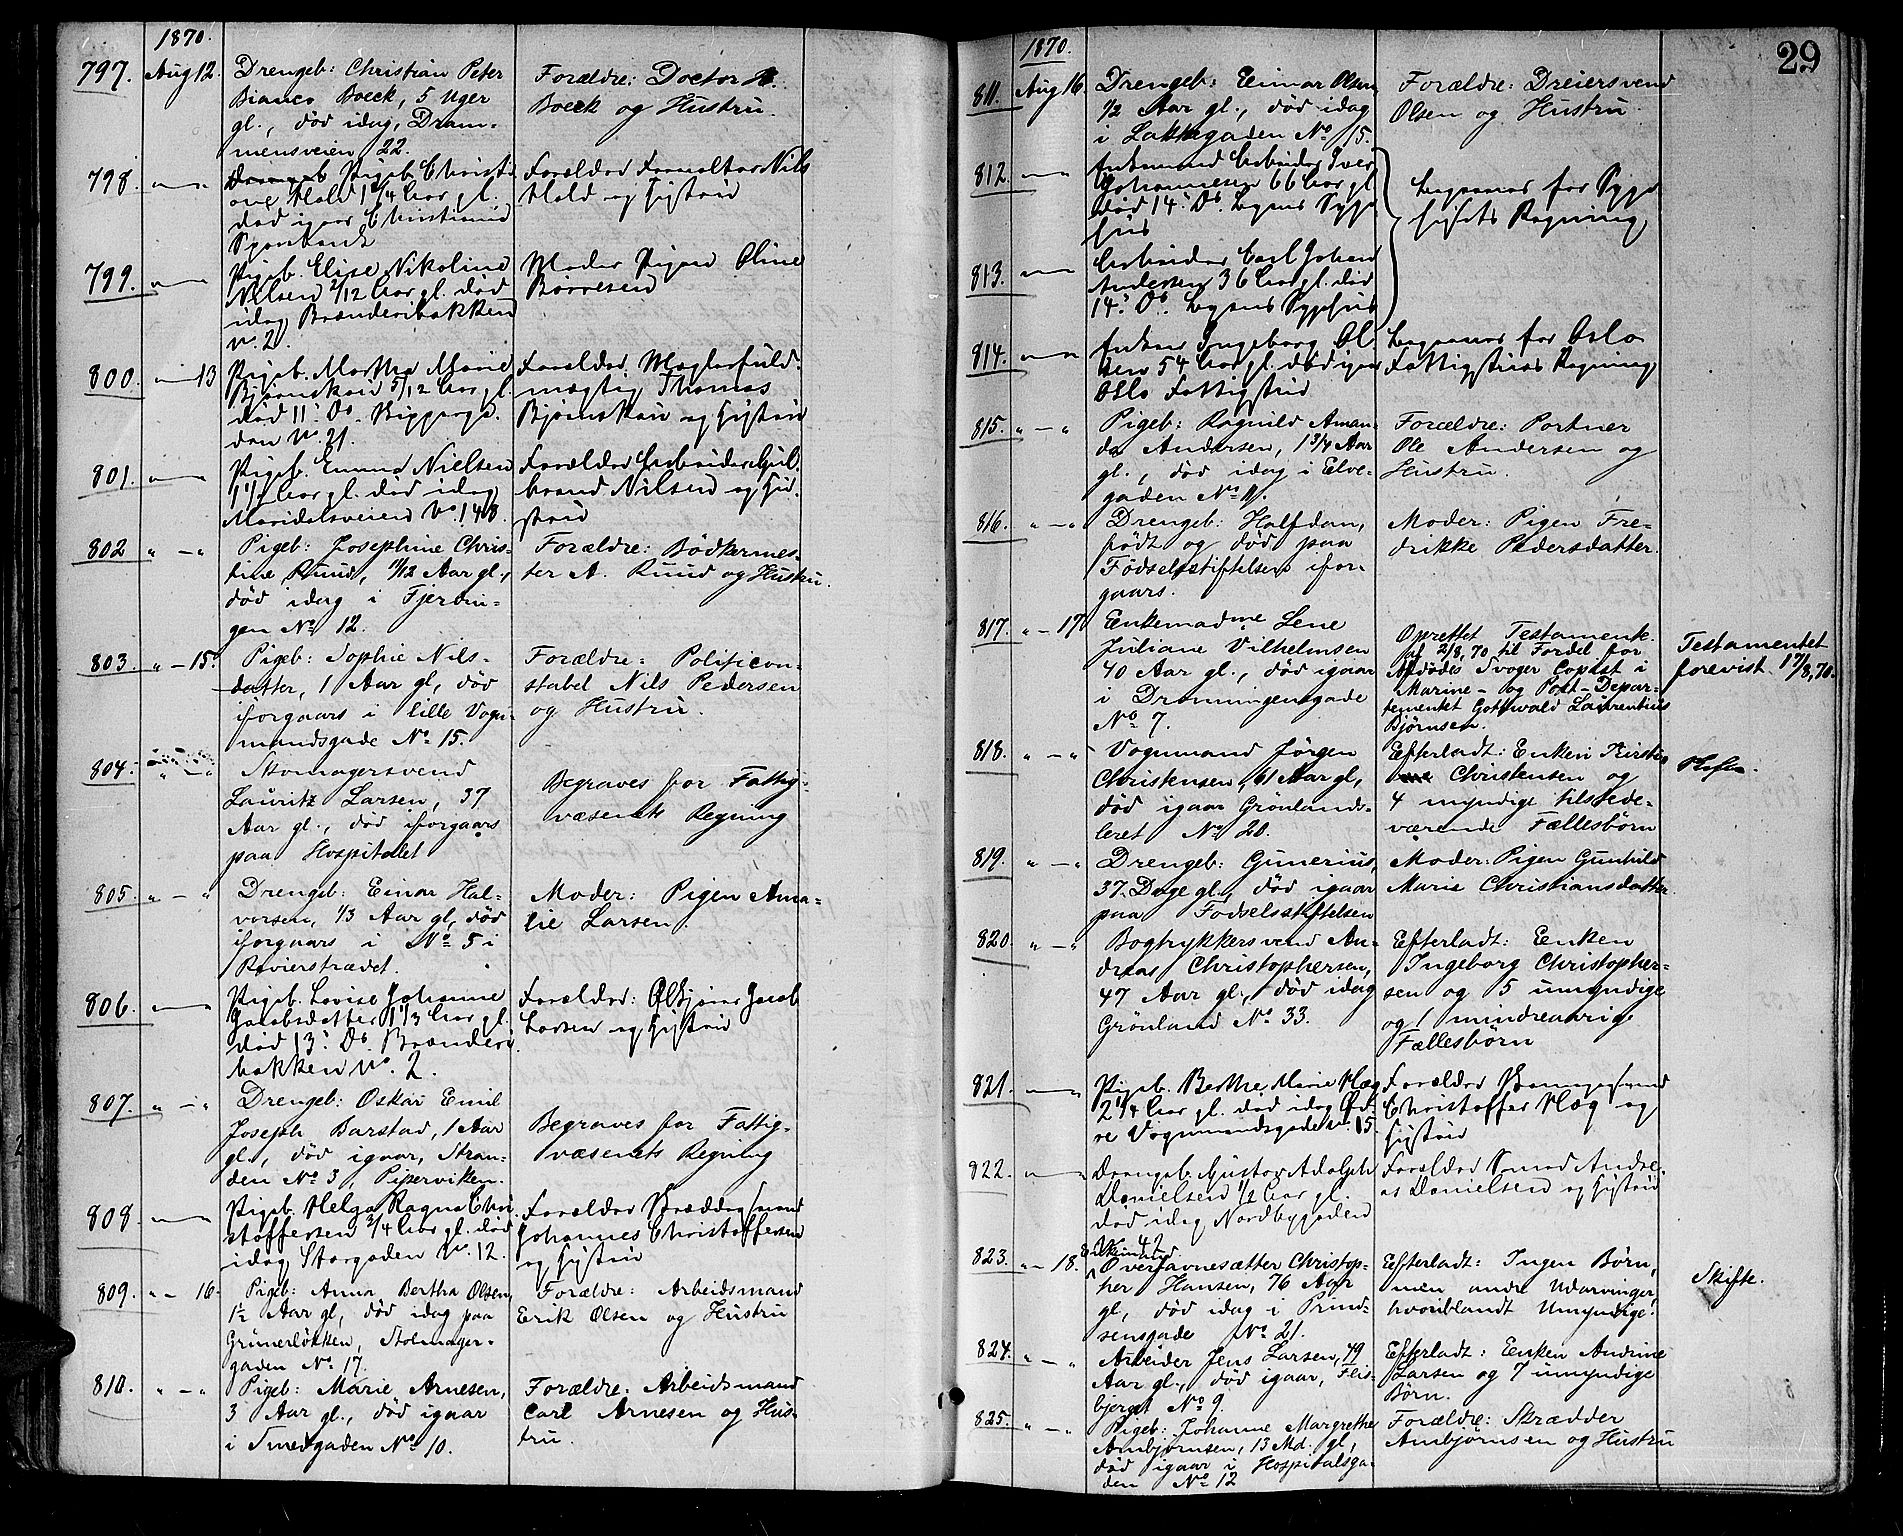 1870.
797. Aug 12. Drengeb: Christian Peter
Bianco Boeck, 5 Uger
gl., død idag, Dram-
mensveien 22.
Forældre: Doctor H.
Boeck og Hustru.
798. " — " Pigeb. Christi
ane Hold 1 3/4 Aar gl.
død igaar Christiania
Forældre Forvalter Nils
Hold og Hustru
799. " — " Pigeb. Elise Nikoline
Nilsen 2/12 Aar gl. død
idag Brænderibakken
No. 2.
Moder Pigen Oline
Børresen
800. " — 13 Pigeb. Martha Marie
Bjørnskau 5/12 Aar gl.
død 11' Ds. Briggerga-
den No 21.
Forældre Mæglerfuld-
mægtig Thomas
Bjørnskau og Hustru
801. " — " Pigeb. Emma Nielsen
1 1/2 Aar gl. død idag
Maridalsveien No. 148.
Forældre Arbeider Gul-
brand Nilsen og Hu-
stru
802 " — " Pigeb: Josephine Chris-
tine Ruud, 11/12 Aar gl.,
død idag i Fjerdin-
gen No 12.
Forældre: Bödkermes-
ter A. Ruud og Hustru.
803. " — 15. Pigeb: Sophie Nils-
datter, 1 Aar gl, død
iforgaars i lille Vogn-
mandsgade No 15.
Forældre: Politicon-
stabel Nils Pedersen
og Hustru.
804. " — " Skomagersvend
Lauritz Larsen, 37
Aar gl., død iforgaars
paa Hospitalet
Begraves for Fattig-
væsenets Regning
805. " — " Drengeb: Einar Hal-
vorsen, 1/3 Aar gl, død
iforgaars i No 5 i
Revierstrædet.
Moder: Pigen Ama-
lie Larsen.
806. " — " Pigeb. Lovise Johanne
Jacobsdatter 1 1/3 Aar gl.
død 13' Ds. Brænderi
bakken No. 2.
Forældre: Ølkjører Jacob
Larsen og Hustru
807. " — " Drengeb: Oskar Emil
Joseph Barstad, 1 Aar
gl., død igaar, Stran-
den No 3, Piperviken.
Begraves for Fattig-
væsenets Regning
808. " — " Pigeb. Helga Ragna Chri
stoffersen 3/4 Aar gl. død
idag Storgaden No. 12.
Forældre Skræddersvend
Johannes Christoffersen
og Hustru
809. " — 16. Pigeb: Anna Bertha Olsen,
1 1/2 Aar gl, død idag paa
Grünerløkken, Stolmager-
gaden No 17.
Forældre: Arbeidsmand
Erik Olsen og Hustru
810. " — " Pigeb: Marie Arnesen,
3 Aar gl., død igaar
i Smedgaden No 10.
Forældre: Arbeidsmand
Carl Arnesen og Hus-
tru.
29
1870.
811. Aug 16. Drengeb: Einar Olsen
1/2 Aar gl., død idag
i Lakkegaden No 15.
Forældre: Dreiersvend
Olsen og Hustru.
812. " — " Enkemand Arbeider Iver
Johannesen 66 Aar gl
død 14' Ds. Byens Syge
hus
Begraves for Syge
husets Regning
813. " — " Arbeider Carl Johan
Andersen 36 Aar gl. død
14' Ds. Byens Sygehus
814. " — " Enken Ingeborg Ol
sen 54 Aar gl. død igaar
Oslo Fattighus
Begraves for Oslo
Fattighuses Regning
815. " — " Pigeb: Ragnild Aman-
da Andersen, 1 3/4 Aar
gl., død idag i Elve-
gaden No 11.
Forældre: Portner
Ole Andersen og
Hustru.
816. " — " Drengeb: Halfdan,
født og død paa
Fødselsstiftelsen ifor-
gaars.
Moder: Pigen Fre-
drikke Pedersdatter.
817. " — 17. Enkemadme Lene
Juliane Vilhelmsen
40 Aar gl., død igaar
i Dronningensgade
No 7.
Oprettet Testamente
af 2/8,70 til Fordel for
Afdødes Svoger Copist i
Marine- og Post-Depar-
tementet Gottwald Laurentius
Bjørnsen.
Testamentet
forevist. 17/8,70.
818. " — " Vognmand Jørgen
Christensen, 61 Aar gl,
død igaar Grønlands-
leret No 20.
Efterladt: Enken Kirsten
Christensen og
4 myndige tilstede-
værende Fællesbørn
819. " — " Drengeb: Gunerius,
37 Dage gl, død igaar
paa Fødselsstiftelsen
Moder: Pigen Gunhild
Marie Christiansdatter.
820. " — " Bogtrykkersvend An-
dreas Christophersen,
47 Aar gl., død idag
Grønland No 33.
Efterladt: Enken
Ingeborg Christopher-
sen og 5 umyndige
og 1 mindreaarig
Fællesbørn
821. " — " Pigeb. Berthe Marie Hæg
2 1/4 Aar gl. død idag Ø-
re Vognmandsgade No. 15
Forældre
Christoffer Hæg og
Hustru
822. " — " Drengeb. Gustav Adolph
Danielsen 1/2 Aar gl.
død idag Nordbygaden
No. 42
Forældre Smed Andre-
as Danielsen og Hustru
823. " — 18. Enkemand
Overfavnesætter Christop-
her Hansen, 76 Aar
gl, død idag i Prind-
sensgade No 21.
Efterladt: Ingen Børn,
men andre Udarvinger,
hvoriblandt Umyndige.
Skifte.
824. " — " Arbeider Jens Larsen, 49
Aar gl., død igaar, Flis-
bjerget No 9.
Efterladt: Enken Andrine
Larsen og 7 umyndige
Børn.
825. " — " Pigeb: Johanne Margrethe
Arnbjørnsen, 13 Md. gl,
død igaar i Hospitalsga-
den No 12
Forældre: Skrædder
Arnbjørnsen og Hustru